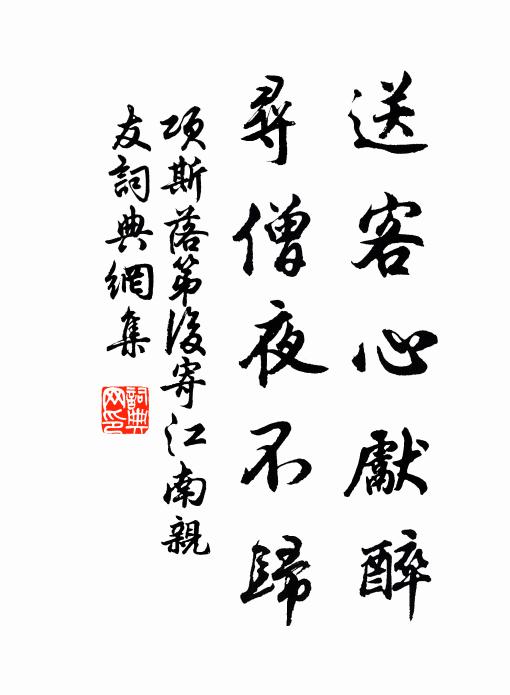 送客心獻醉
尋僧夜不歸
項斯落第後寄江南親
友詞典網集
詞典
网印